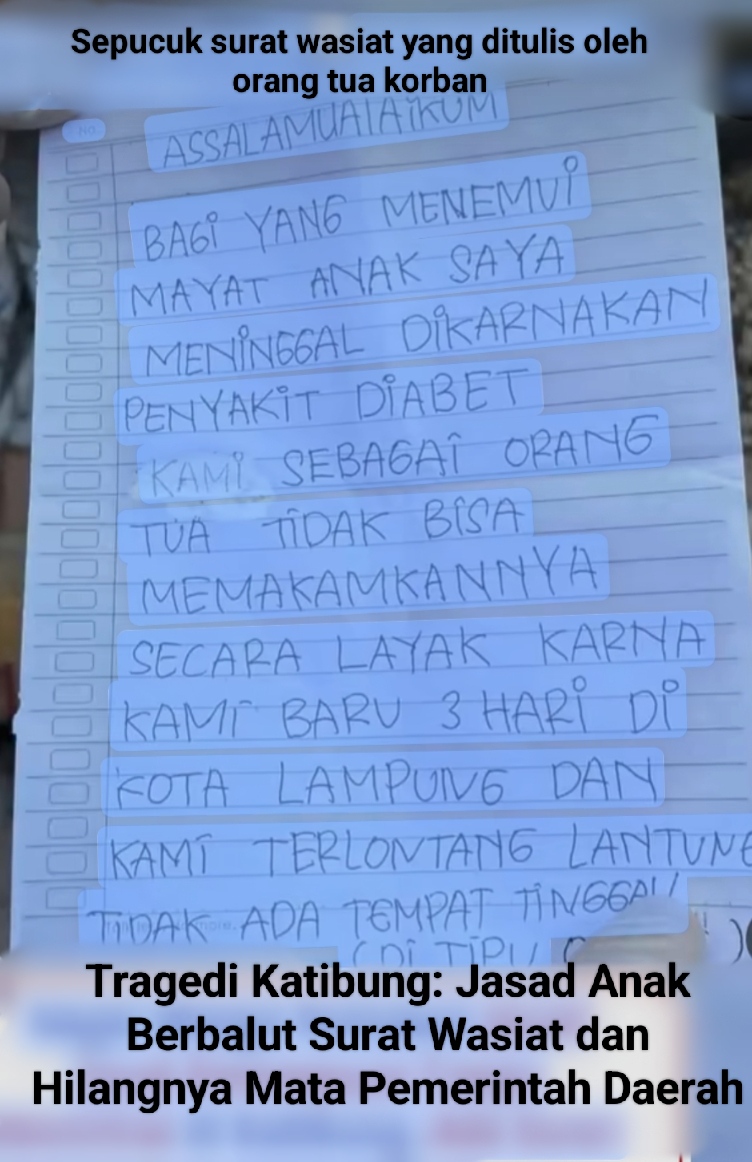 Sepucuk surat wasiat yang ditulis oleh
orang tua korban
No.
ASSALAMUALAIKUM
BAGI YANG MENEMUI
MAYAT ANAK SAYA
MENINGGAL DIKARNAKAN
PENYAKIT DIABET
KAMI SEBAGAI ORANG
TUA TIDAK BISA
MEMAKAMKANNYA
SECARA LAYAK KARNA
KAMI BARU 3 HARI DI
KOTA LAMPUNG DAN
KAMI TERLONTANG LANTUNG
TIDAK ADA TEMPAT TINGGAL
(DI TIPU
Tragedi Katibung: Jasad Anak
Berbalut Surat Wasiat dan
Hilangnya Mata Pemerintah Daerah